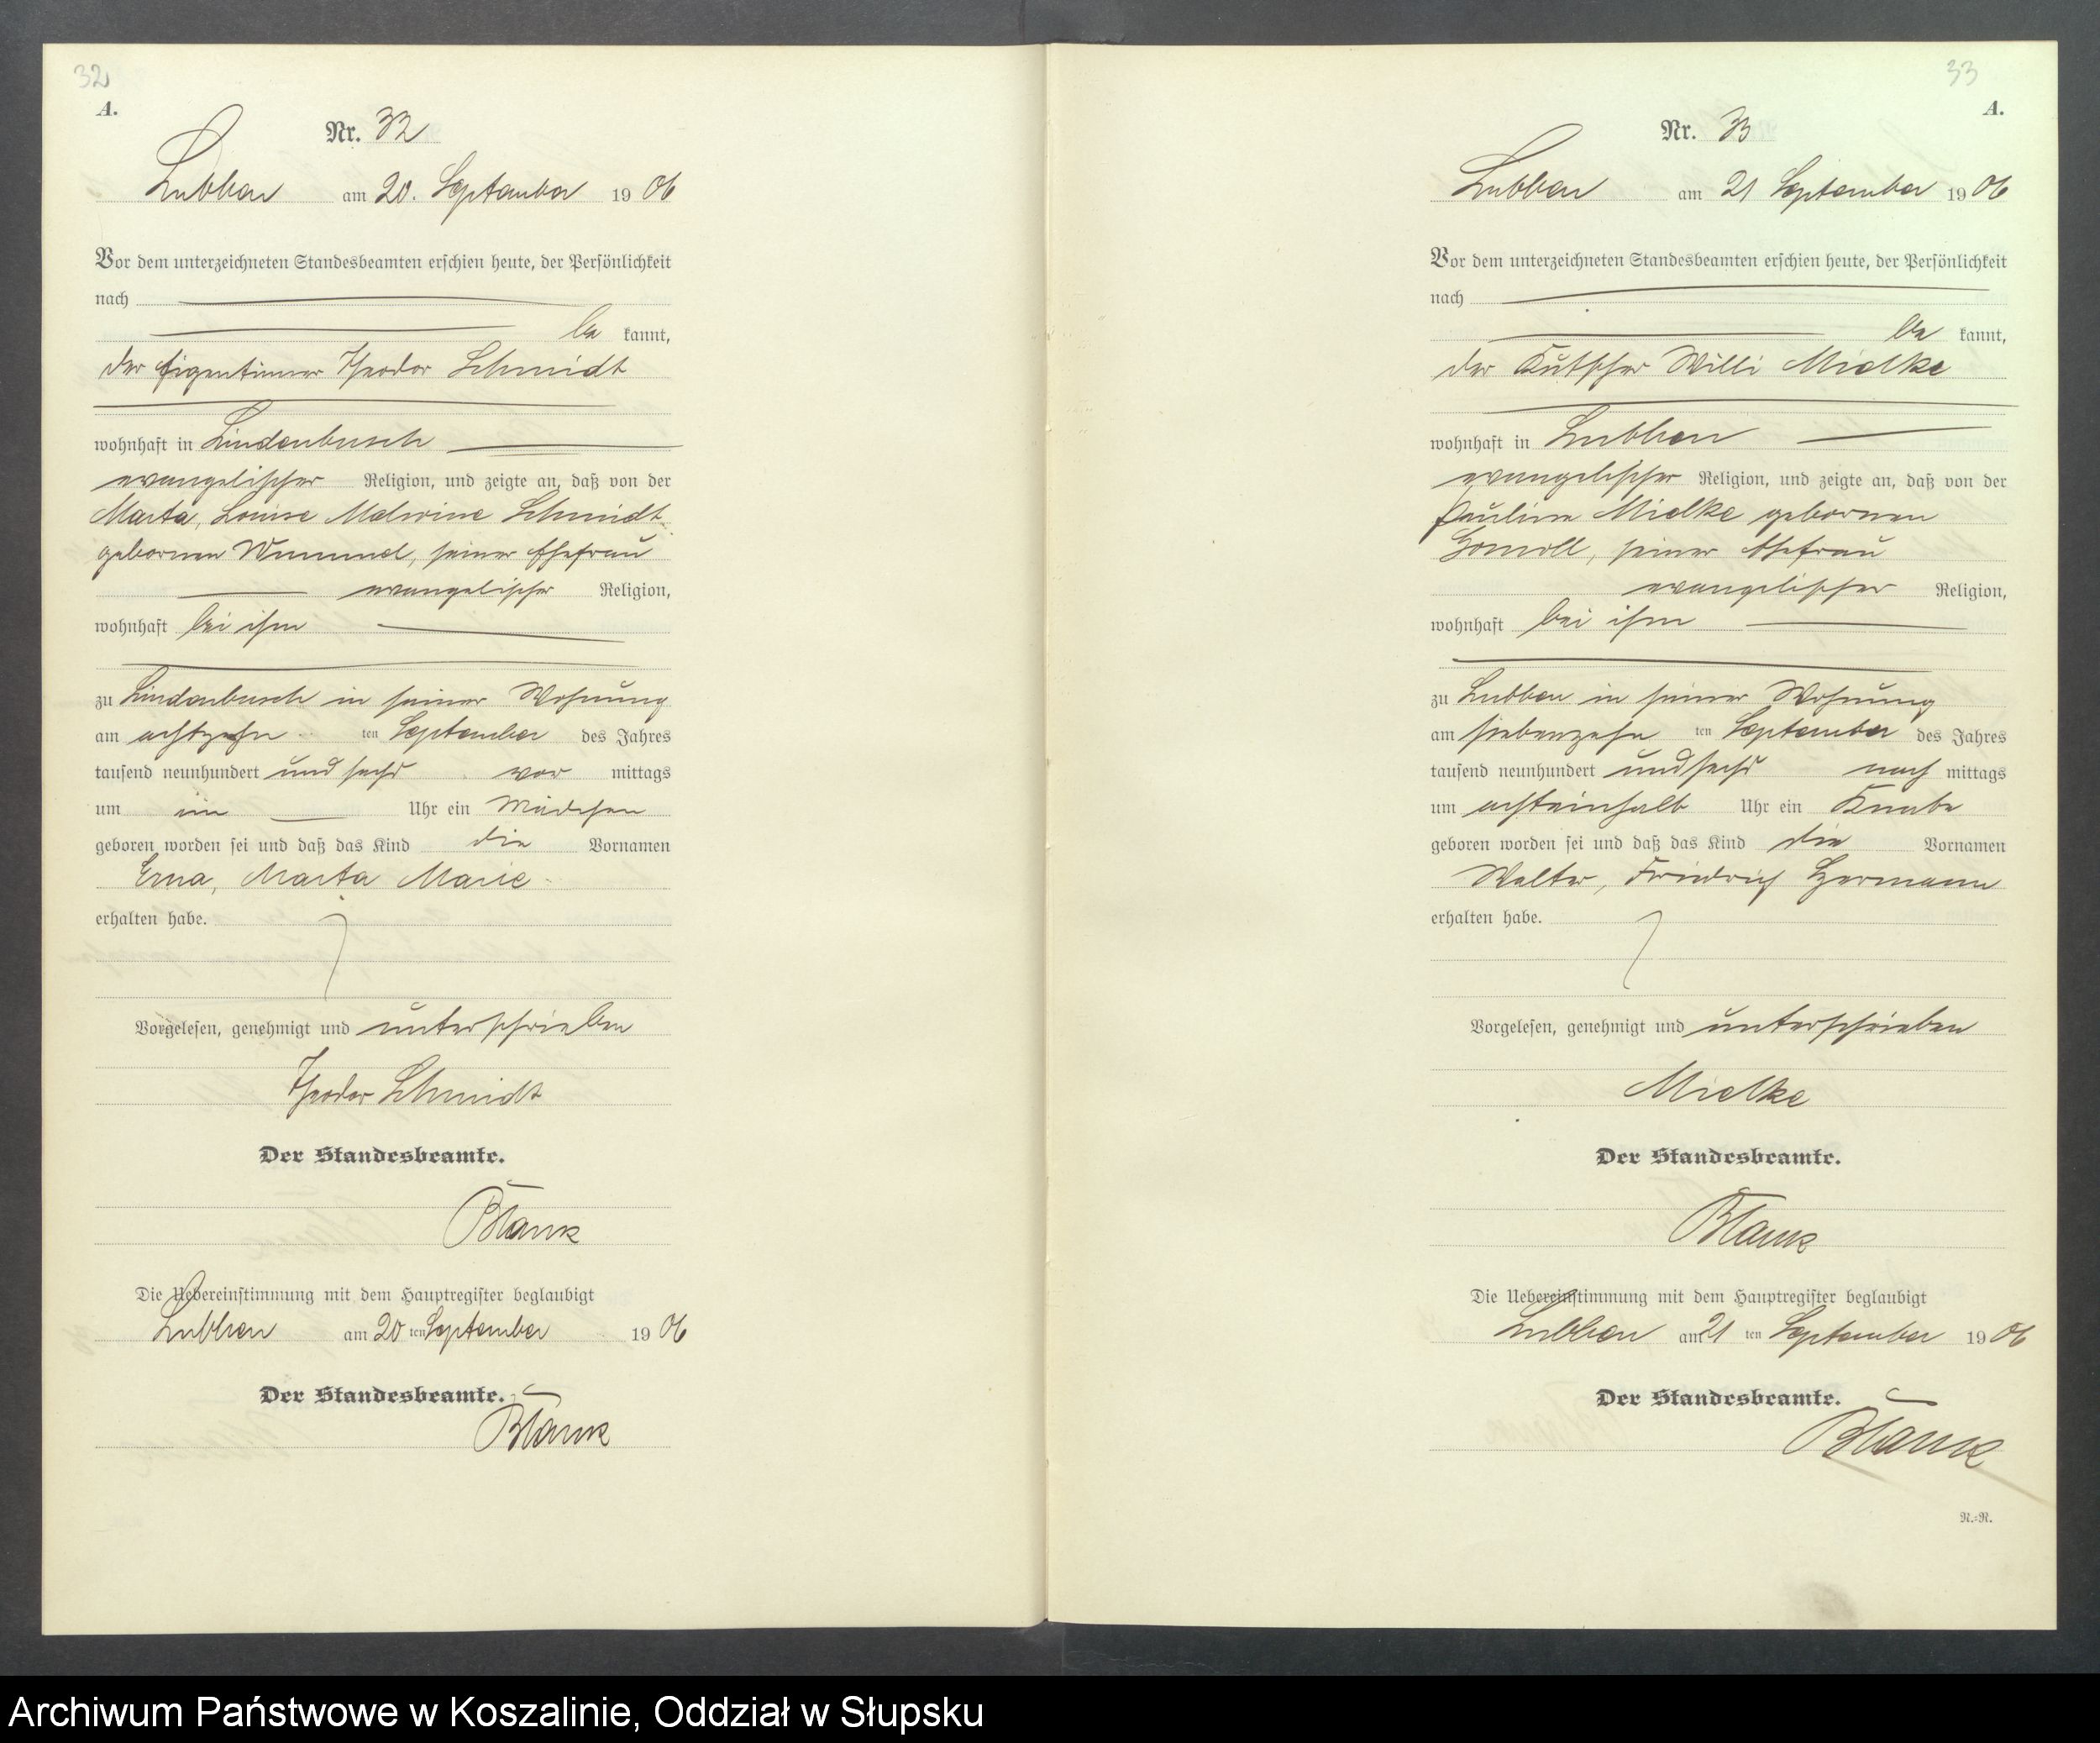 32
A.
Nr. 32
Lubben am 20. September 1906
Vor dem unterzeichneten Standesbeamten erschien heute, der Persönlichkeit
nach
be kannt,
der Eigentümer Theodor Schmidt
wohnhaft in Lindenbusch
evangelischer Religion, und zeigte an, daß von der
Marta, Louise Malwine Schmidt
gebornen Wummel, seiner Ehefrau
evangelischer Religion,
wohnhaft bei ihm
zu Lindenbusch in seiner Wohnung
am achtzehn ten September des Jahres
tausend neunhundert und sechs vor mittags
um ein Uhr ein Mädchen
geboren worden sei und daß das Kind die Vornamen
Erna, Marta Marie
erhalten habe.
Vorgelesen, genehmigt und unterschrieben
Theodor Schmidt
Der Standesbeamte.
Blank
Die Uebereinstimmung mit dem Hauptregister beglaubigt
Lubben am 20 ten September 1906
Der Standesbeamte.
Blank
33
A.
Nr. 33
Lubben am 21 September 1906
Vor dem unterzeichneten Standesbeamten erschien heute, der Persönlichkeit
nach
be kannt,
der Kutscher Willi Mielke
wohnhaft in Lubben
evangelischer Religion, und zeigte an, daß von der
Pauline Mielke gebornen
Gomoll, seiner Ehefrau
evangelischer Religion,
wohnhaft bei ihm
zu Lubben in seiner Wohnung
am siebenzehn ten September des Jahres
tausend neunhundert und sechs nach mittags
um achteinhalb Uhr ein Knabe
geboren worden sei und daß das Kind die Vornamen
Walter, Friedrich Hermann
erhalten habe.
Vorgelesen, genehmigt und unterschrieben
Mielke
Der Standesbeamte.
Blank
Die Uebereinstimmung mit dem Hauptregister beglaubigt
Lubben am 21 ten September 1906
Der Standesbeamte.
Blank
N.=N.
Archiwum Państwowe w Koszalinie, Oddział w Słupsku